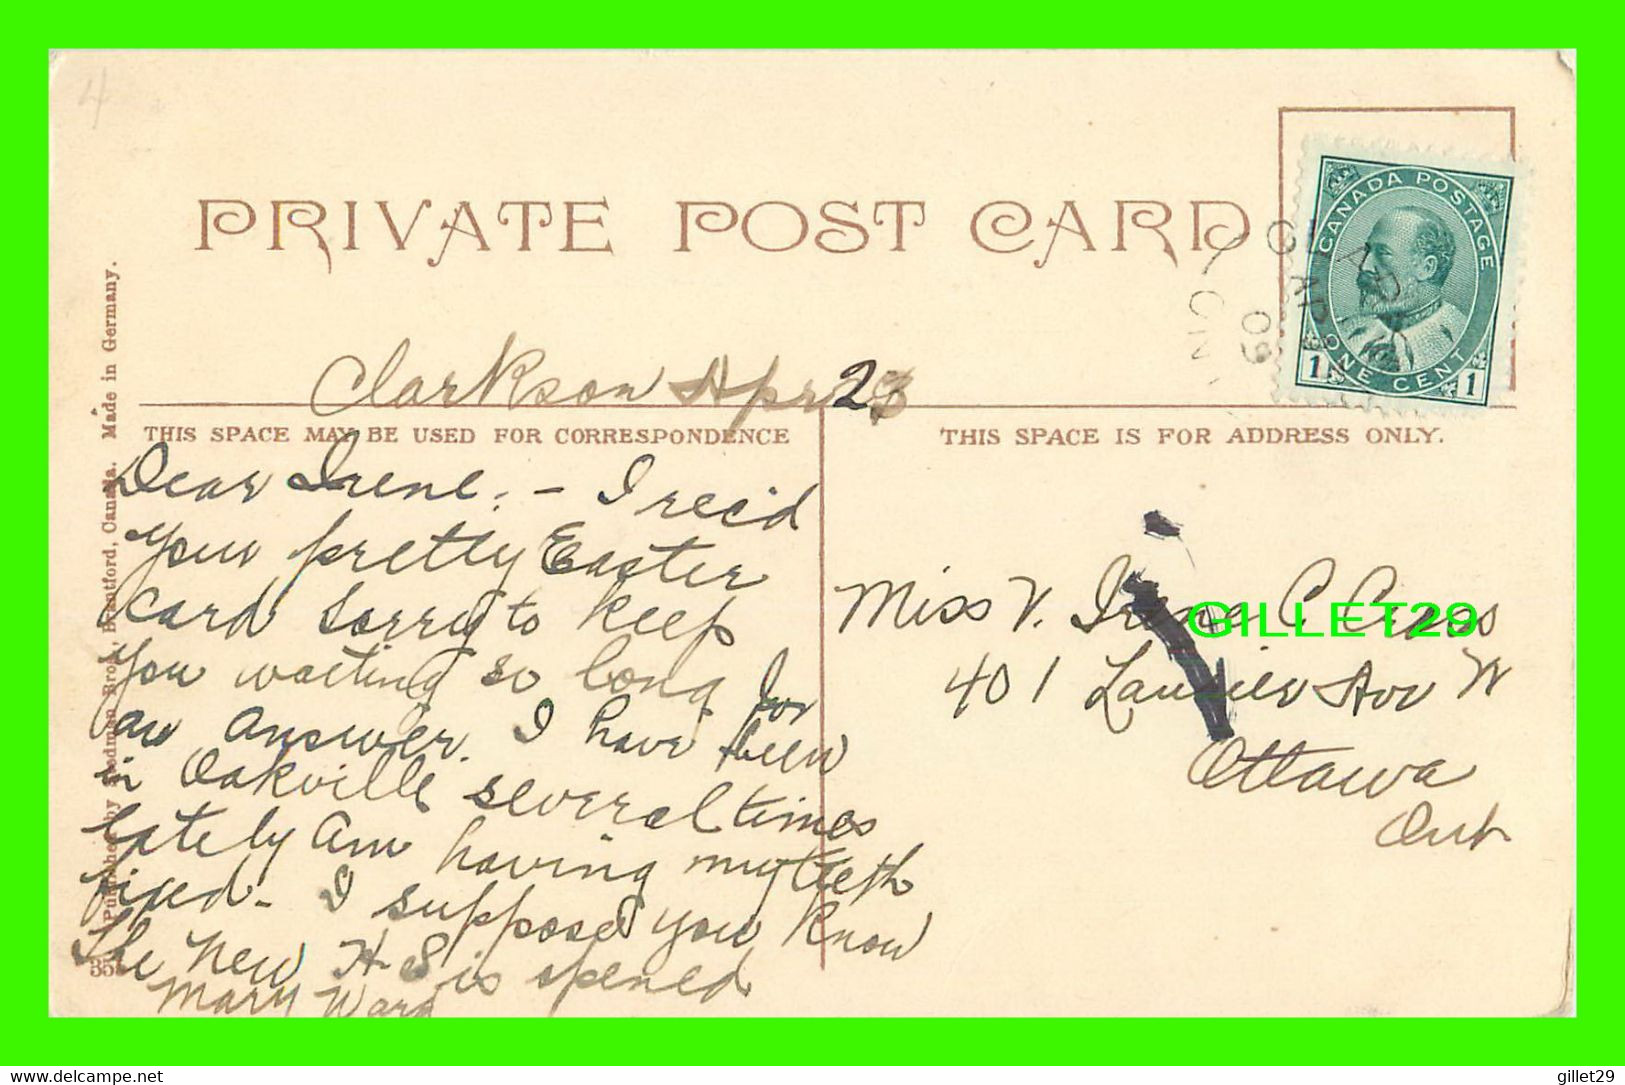 4
PRIVATE POST CARD
CANADA POSTAGE
ONE CENT
1 1
AP
09
ONT
Clarkson Apr 23
THIS SPACE MAY BE USED FOR CORRESPONDENCE
THIS SPACE IS FOR ADDRESS ONLY.
Dear Irene. - I rec'd
your pretty Easter
card sorry to keep
you waiting so long for
an answer. I have been
in Oakville several times
lately am having my teeth
fixed - I suppose you know
the new H.S is opened
Mary Ward
Miss V. Irene C.
401 Laurier Ave W
Ottawa
Ont
GILLET29
Published by Stedman Bros., Brantford, Canada. Made in Germany.
35
delcampe.net
gillet29